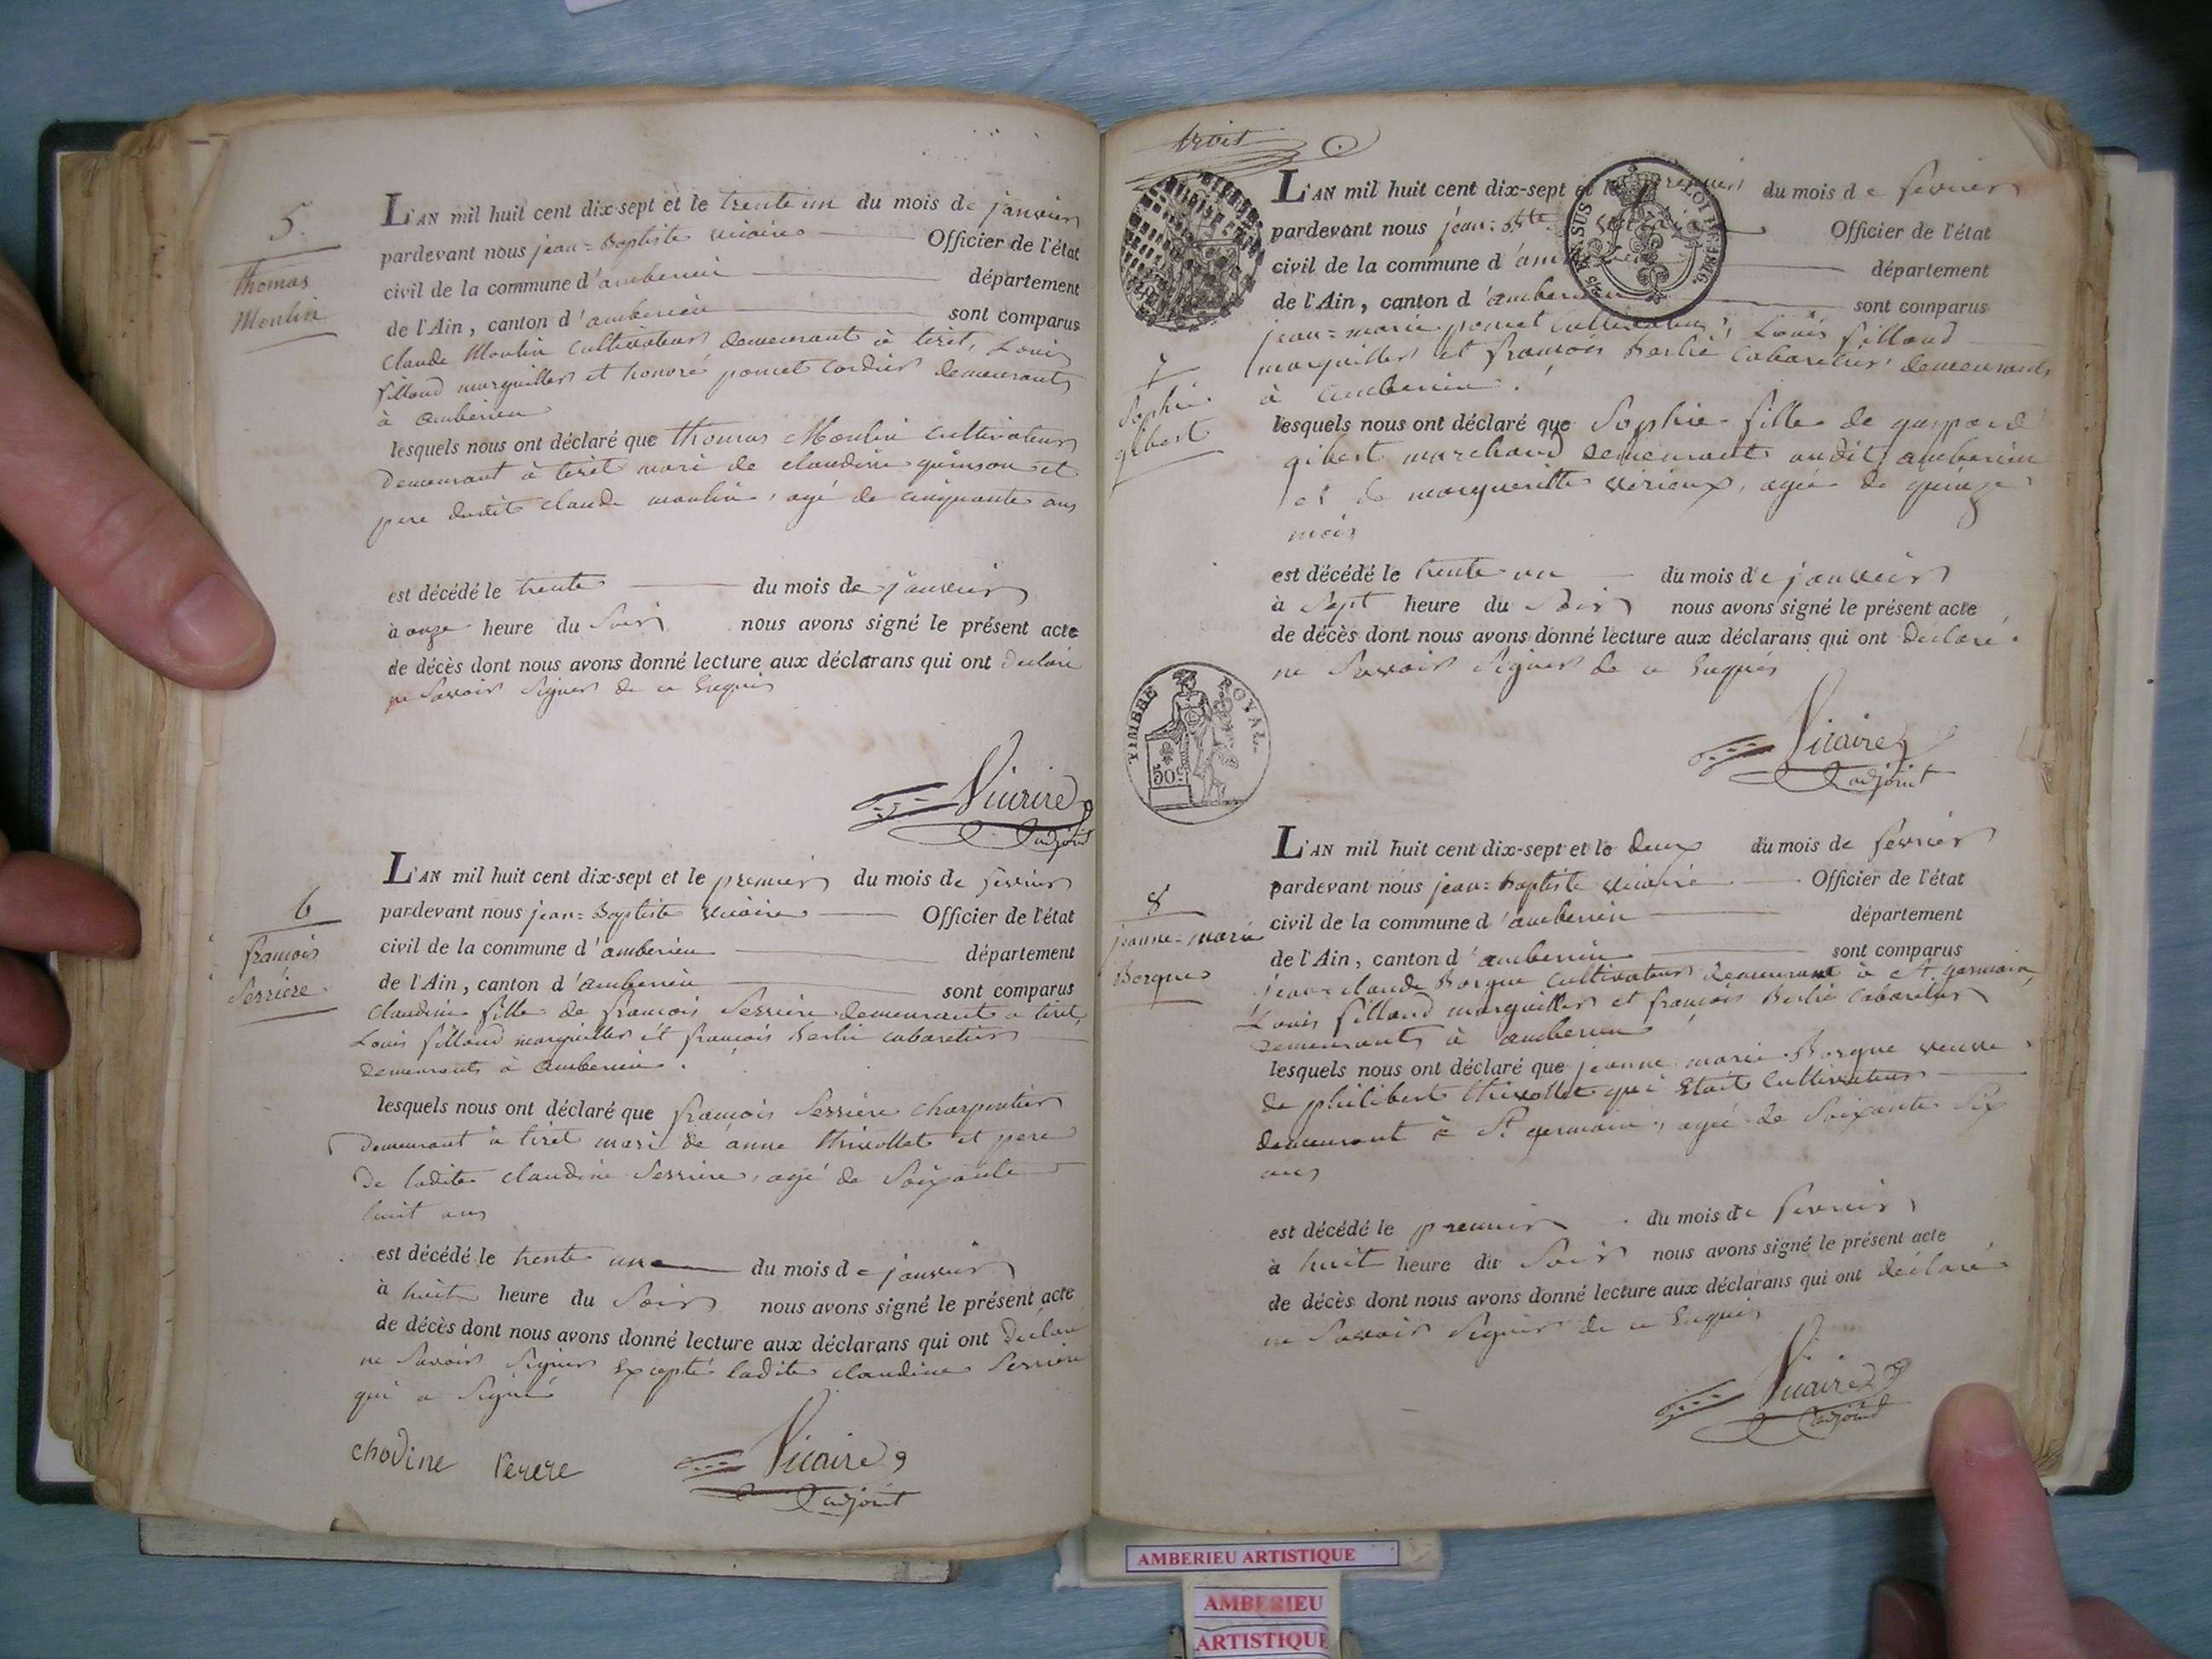 5.
thomas
Moulin
L'AN mil huit cent dix-sept et le trente un du mois de janvier
pardevant nous jean=Baptiste vicaire Officier de l'état
civil de la commune d'amberieu département
de l'Ain, canton d'amberieu sont comparus
Claude Moulin cultivateur demeurant à tiret, Louis
fillaud marguillier et honoré poncet cordier demeurants
à amberieu
lesquels nous ont déclaré que thomas Moulin cultivateur
demeurant à tiret mari de claudine quinson et
pere dudit claude moulin, agé de cinquante ans
est décédé le trente du mois de janvier
à onze heure du soir nous avons signé le présent acte
de décès dont nous avons donné lecture aux déclarans qui ont déclaré
ne savoir signer de ce enquis
Vicaire
adjoint
6
françois
Serriere
L'AN mil huit cent dix-sept et le premier du mois de fevrier
pardevant nous jean=Baptiste vicaire Officier de l'état
civil de la commune d'amberieu département
de l'Ain, canton d'amberieu sont comparus
Claudine fille de francois Serriere demeurante a tiret,
Louis fillaud marguillier et françois Berlie cabaretier
demeurants à amberieu.
lesquels nous ont déclaré que françois Serriere charpentier
demeurant à tiret mari de anne thivollet et pere
de ladite claudine Serriere, agé de soixante
huit ans
est décédé le trente un du mois de janvier
à huit heure du soir nous avons signé le présent acte
de décès dont nous avons donné lecture aux déclarans qui ont déclaré
ne savoir signer excepté ladite claudine Serriere
qui a signé
chodine serere
Vicaire
adjoint
trois
L'AN mil huit cent dix-sept et le premier du mois de fevrier
pardevant nous jean=Bte vicaire Officier de l'état
civil de la commune d'amberieu département
de l'Ain, canton d'amberieu sont comparus
SUS LOI DE 1816.
7
Sophie
gibert
jean=marie poncet cultivateur, Louis fillaud
marguillier et francois Berlié cabaretier demeurants
à amberieu.
lesquels nous ont déclaré que Sophie fille de gaspard
gibert marchand demeurant audit amberieu
et de margueritte vérieux, agée de quinze
mois
est décédé le trente un du mois de janvier
à sept heure du soir nous avons signé le présent acte
de décès dont nous avons donné lecture aux déclarans qui ont déclaré
ne savoir signer de ce enquis
TIMBRE ROYAL
50c
Vicaire
adjoint
8
jeanne-marie
Borgue
L'AN mil huit cent dix-sept et le deux du mois de fevrier
pardevant nous jean=Baptiste vicaire Officier de l'état
civil de la commune d'amberieu département
de l'Ain, canton d'amberieu sont comparus
jean=claude Borgue cultivateur demeurant à St. germain,
Louis fillaud marguillier et francois Berlié cabaretier
demeurants à amberieu
lesquels nous ont déclaré que jeanne marie Borgue veuve
de philibert thivollet qui était cultivateur
demeurant à St germain, agée de soixante six
ans
est décédé le premier du mois de fevrier
à huit heure du soir nous avons signé le présent acte
de décès dont nous avons donné lecture aux déclarans qui ont déclaré
ne savoir signer de ce enquis
Vicaire
adjoint
AMBERIEU ARTISTIQUE
AMBERIEU
ARTISTIQUE